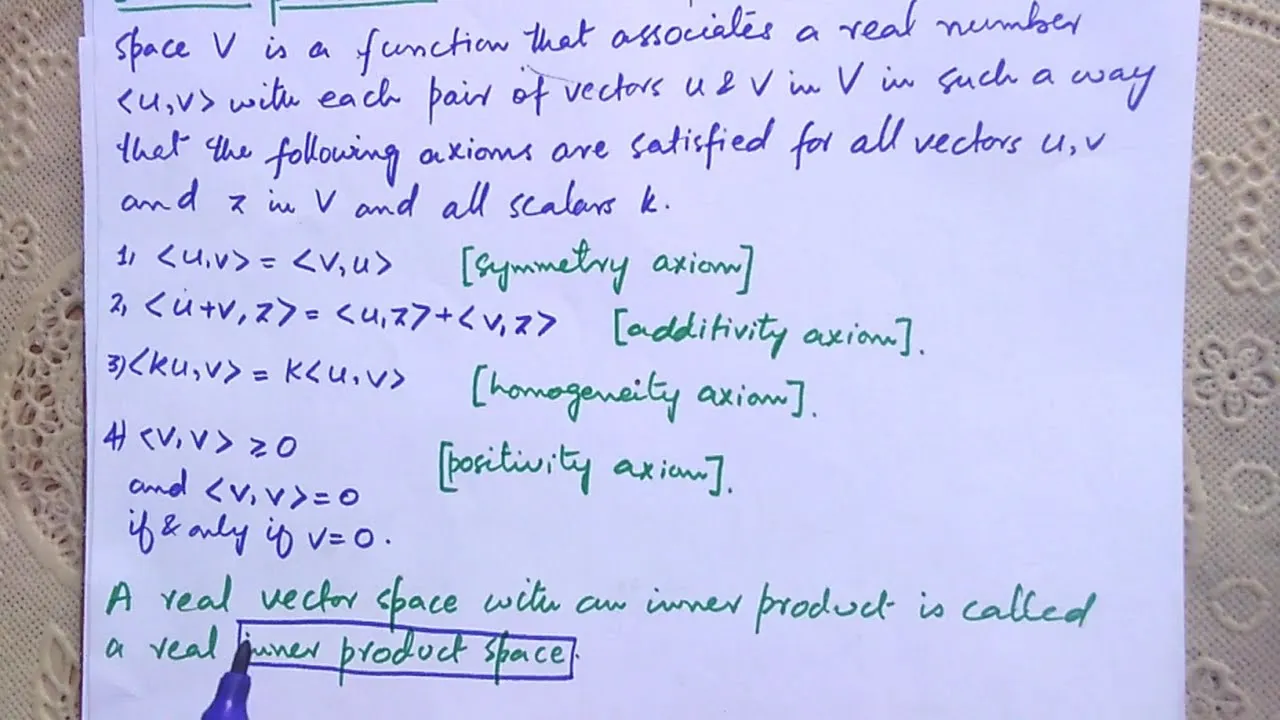 space V is a function that associates a real number
<u,v> with each pair of vectors u & v in V in such a way
that the following axioms are satisfied for all vectors u,v
and z in V and all scalars k.
1, <u,v> = <v,u> [symmetry axiom]
2, <u+v,z> = <u,z>+<v,z> [additivity axiom].
3) <ku,v> = k<u,v> [homogeneity axiom].
4) <v,v> ≥ 0 [positivity axiom].
and <v,v> = 0
if & only if v=0.
A real vector space with an inner product is called
a real inner product space.